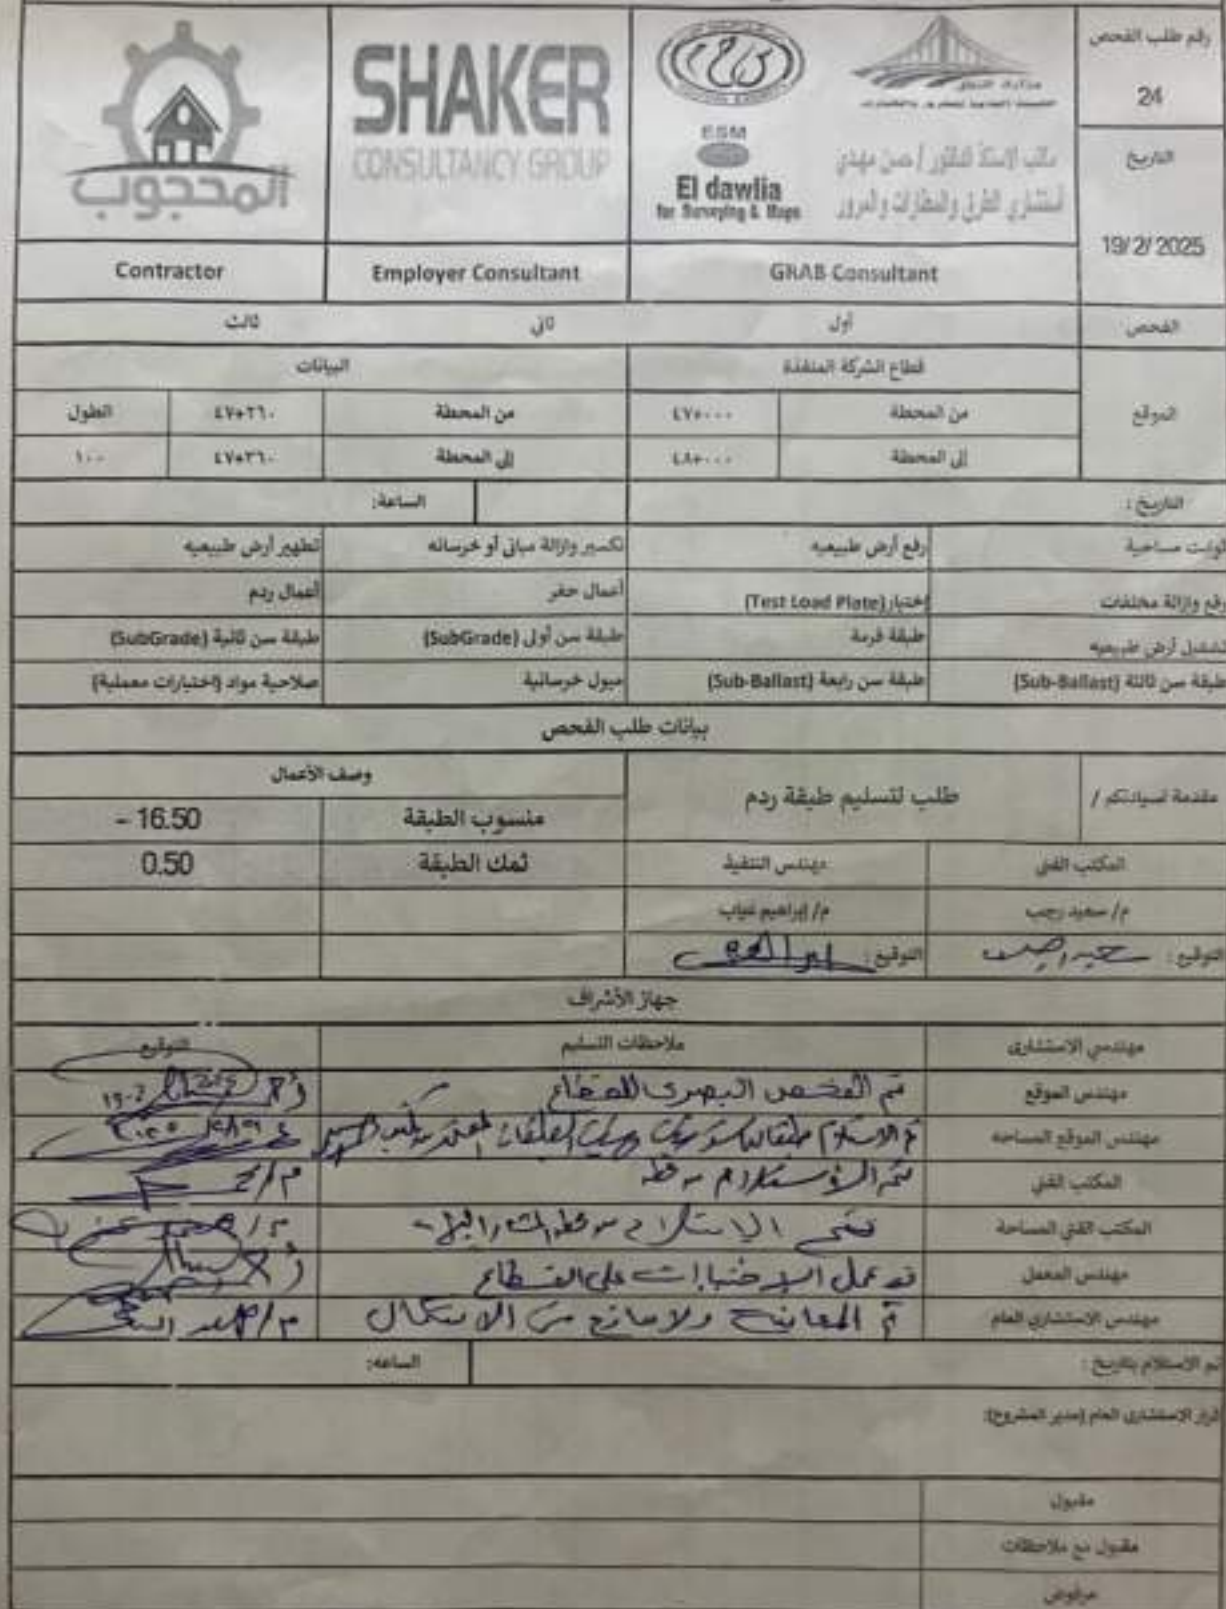 رقم طلب الفحص
24
التاريخ
19/2/2025
وزارة النقل
مكتب الاستاذ الدكتور / حسن مهدي
أستشاري الطرق والمطارات والمرور
ESM
El dawlia
for Surveying & Maps
SHAKER
CONSULTANCY GROUP
المحجوب
GRAB Consultant
Employer Consultant
Contractor
الفحص
أول ثاني ثالث
الموقع
قطاع الشركة المنفذة
البيانات
من المحطة ٤٧+٠٠٠ من المحطة ٤٧+٢٦٠ الطول
إلى المحطة ٤٨+٠٠٠ إلى المحطة ٤٧+٣٦٠ ١٠٠
التاريخ : الساعة:
مساحية رفع أرض طبيعيه تكسير وازالة مباني أو خرسانه تطهير أرض طبيعيه
رفع وازالة مخلفات إختبار (Test Load Plate) أعمال حفر أعمال ردم
تشغيل أرض طبيعيه طبقة فرمة طبقة سن أولى (SubGrade) طبقة سن ثانية (SubGrade)
طبقة سن ثالثة (Sub-Ballast) طبقة سن رابعة (Sub-Ballast) ميول خرسانية صلاحية مواد (اختبارات معملية)
بيانات طلب الفحص
مقدمة لسيادتكم /
طلب لتسليم طبقة ردم
وصف الأعمال
منسوب الطبقة 16.50 -
المكتب الفني مهندس التنفيذ ثمك الطبقة 0.50
م/ سعيد رجب م/ إبراهيم غياب
التوقيع : سعيد رجب التوقيع :
جهاز الأشراف
مهندسي الاستشاري ملاحظات التسليم التوقيع
مهندس الموقع تم الفحص البصري للقطاع
مهندس الموقع المساحه تم الاستلام
المكتب الفني تم الاستلام
المكتب الفني المساحة تم الاستلام
مهندس المعمل تم عمل الاختبارات على القطاع
مهندس الاستشاري العام تم المعاينة ولا مانع من الاستكمال
تم الاستلام بتاريخ : الساعه:
قرار الاستشاري العام (مدير المشروع):
مقبول
مقبول مع ملاحظات
مرفوض